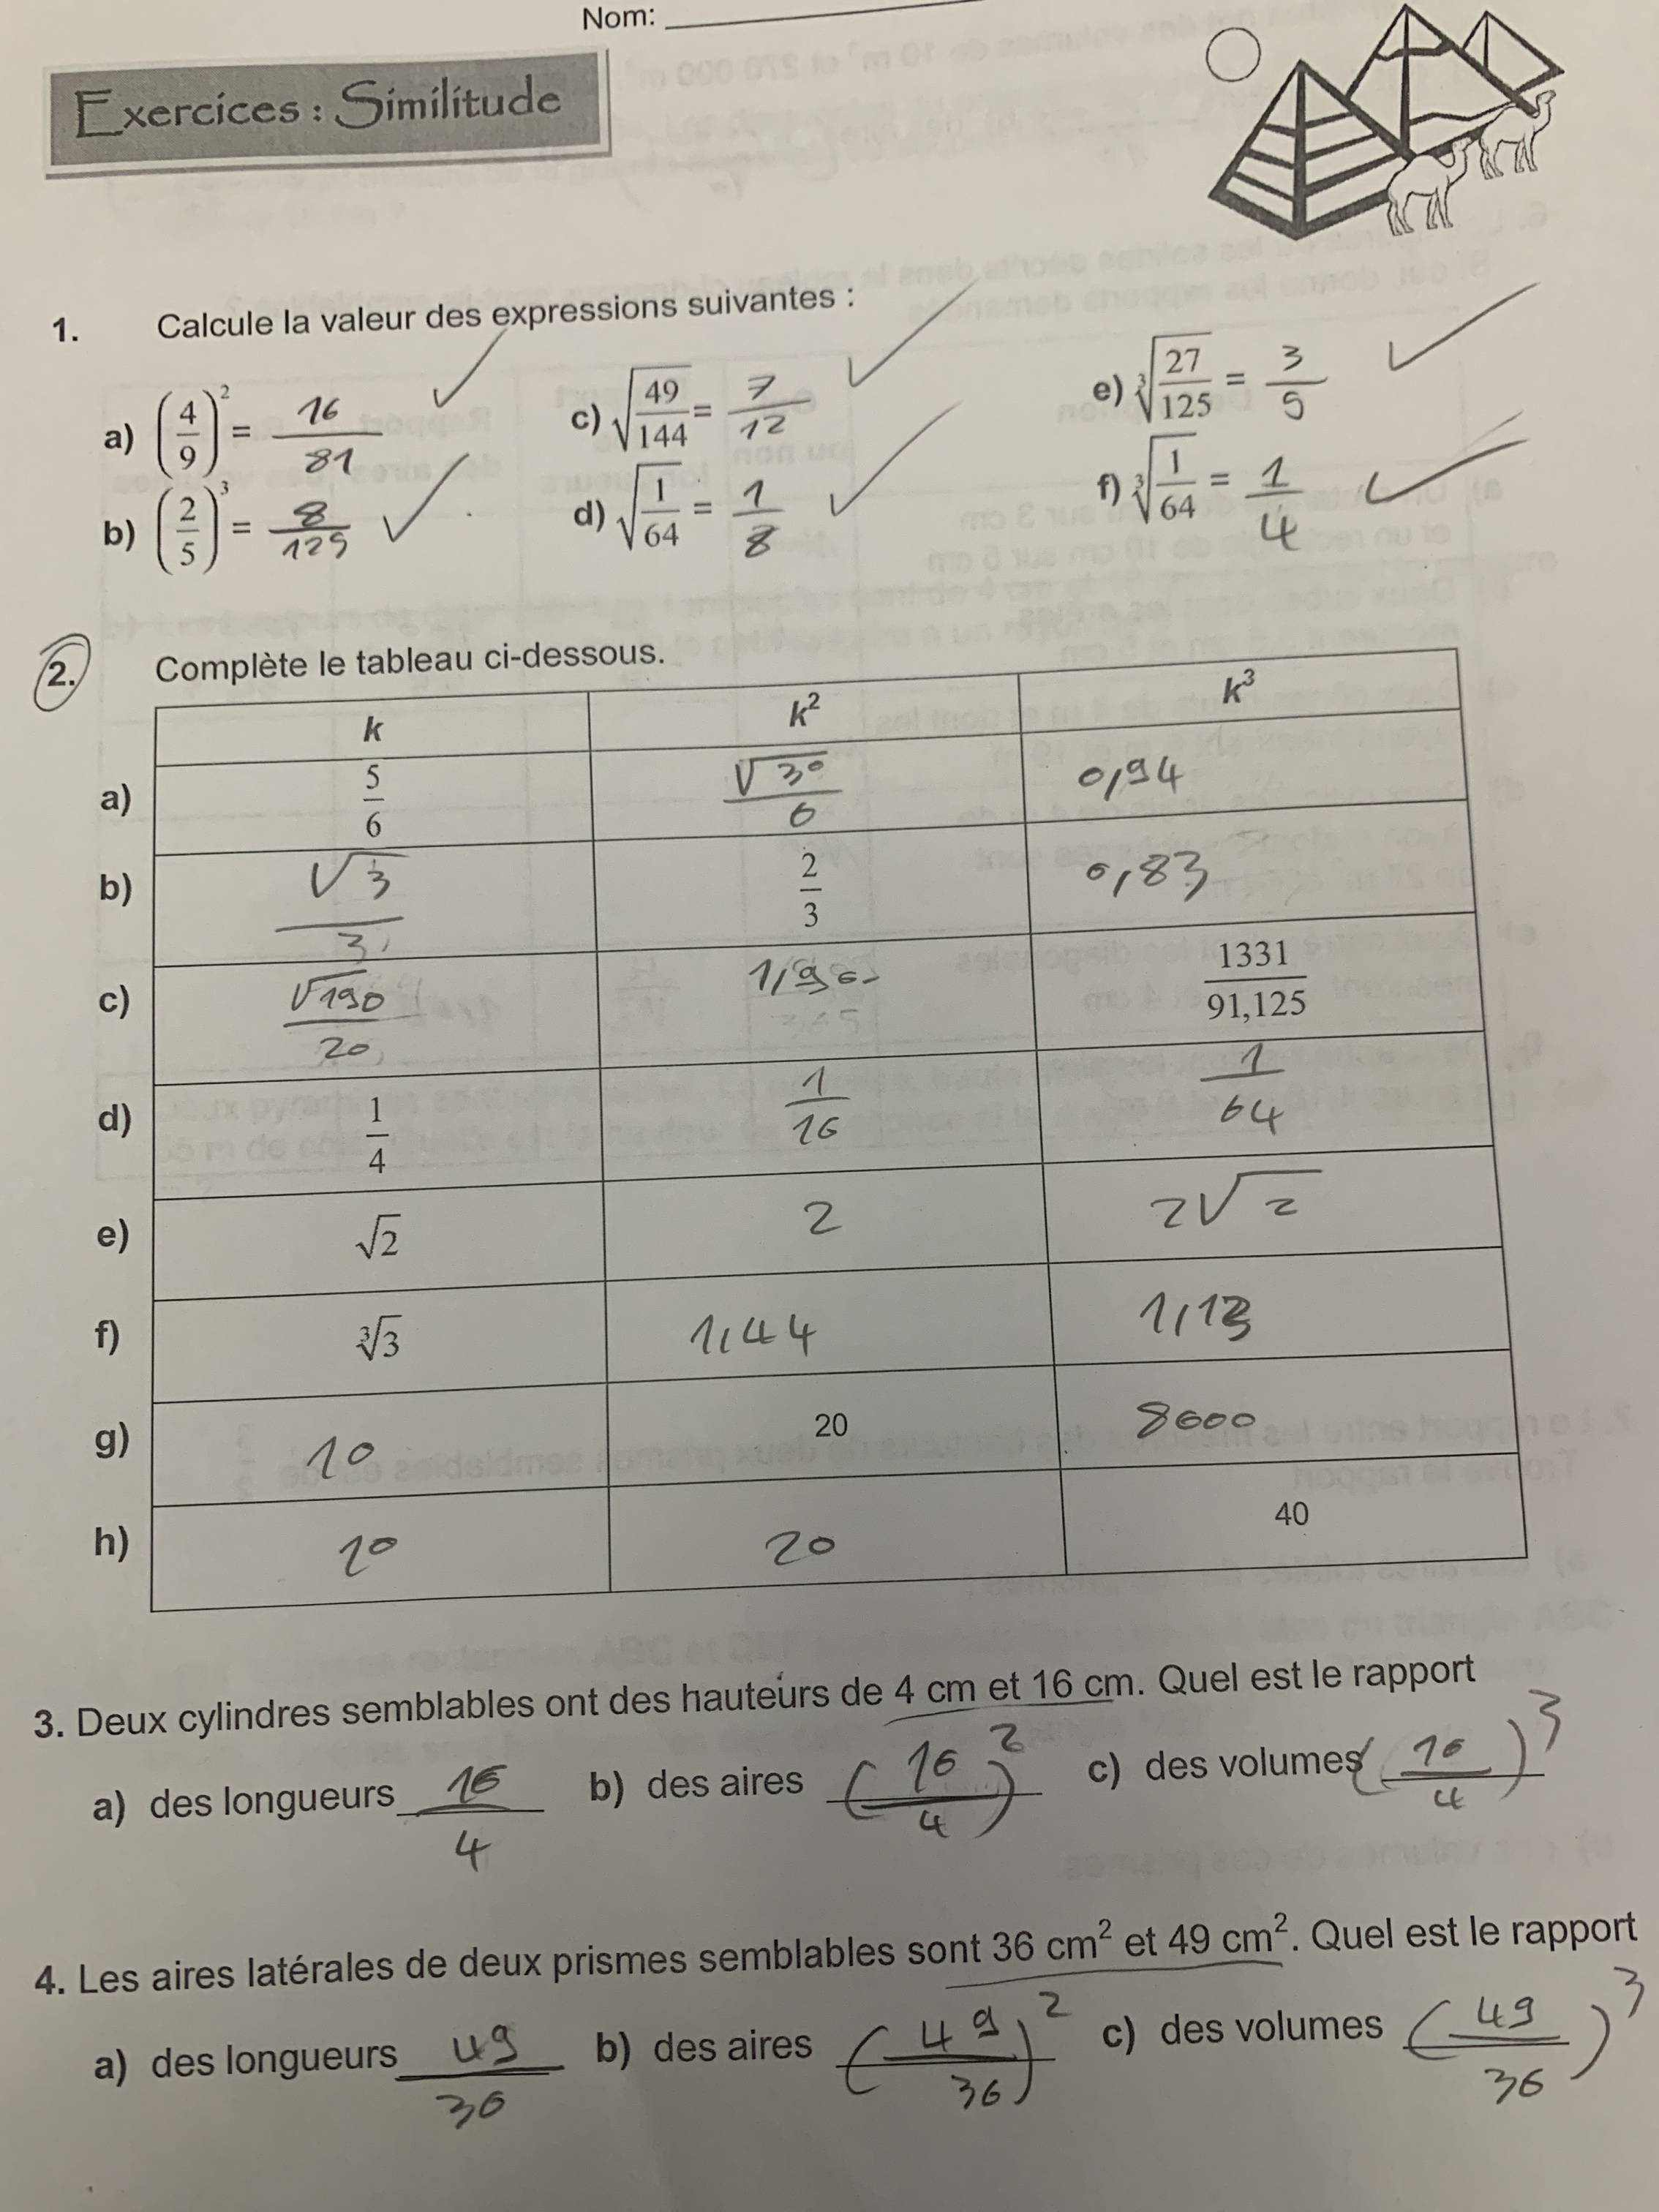 Nom:
Exercices : Similitude
1. Calcule la valeur des expressions suivantes :
a) (4/9)² = 16/81
c) √(49/144) = 7/12
e) ³√(27/125) = 3/5
b) (2/5)³ = 8/125
d) √(1/64) = 1/8
f) ³√(1/64) = 1/4
2. Complète le tableau ci-dessous.
k k² k³
a) 5/6 √30/6 0,94
b) √3/3 2/3 0,83
c) √190/20 1331/91,125
d) 1/4 1/16 1/64
e) √2 2 2√2
f) ³√3 1,44
g) 10 20 8000
h) 10 20 40
3. Deux cylindres semblables ont des hauteurs de 4 cm et 16 cm. Quel est le rapport
a) des longueurs 16/4 b) des aires (16/4)² c) des volumes (16/4)³
4. Les aires latérales de deux prismes semblables sont 36 cm² et 49 cm². Quel est le rapport
a) des longueurs 49/36 b) des aires (49/36)² c) des volumes (49/36)³